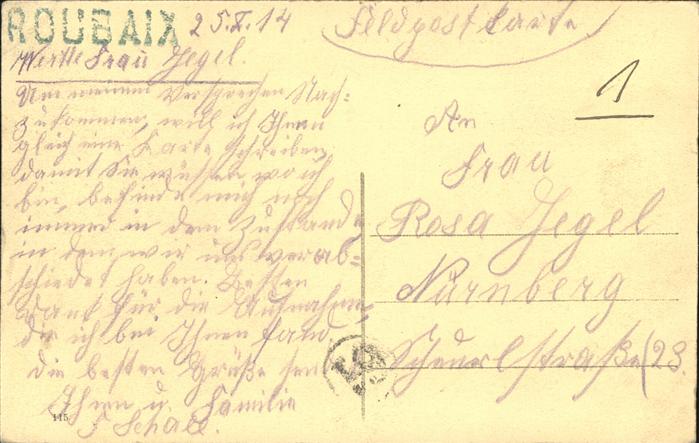 ROUBAIX 25.X.14
Feldpostkarte
Werthe Frau Jegel.
Um meinem Versprechen Nach-
zukommen, will ich Ihnen
gleich eine Karte schreiben,
damit Sie wissen wo ich
bin, befinde mich noch
immer in dem Zustande
in dem wir uns verab-
schiedet haben. Besten
Dank für die Aufnahme,
die ich bei Ihnen fand
die besten Grüße sen
Ihnen u. Familie
F Schall.
115
1
An
Frau
Rosa Jegel
Nürnberg
Scheurlstraße 28